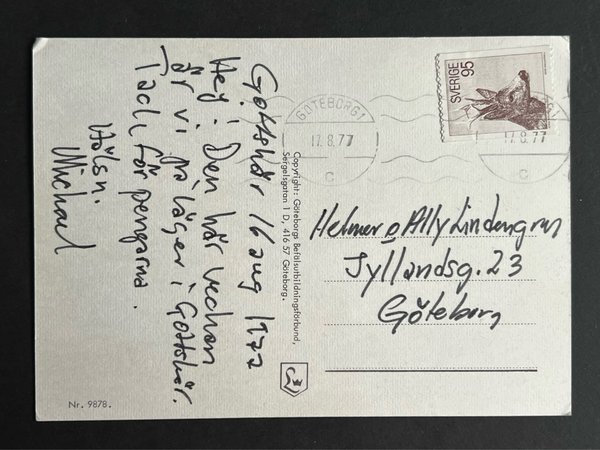 Gottskär 16 aug 1977
Hej! Den här veckan
är vi på läger i Gottskär.
Tack för pengarna.
Hälsn.
Michael
Copyright: Göteborgs Befälsutbildningsförbund,
Sergelsgatan 1 D, 416 57 Göteborg.
Nr. 9878.
SVERIGE 95
GÖTEBORG 1
17.8.77
C
17.8.77
C
Helmer o Ally Lindengren
Jyllandsg. 23
Göteborg